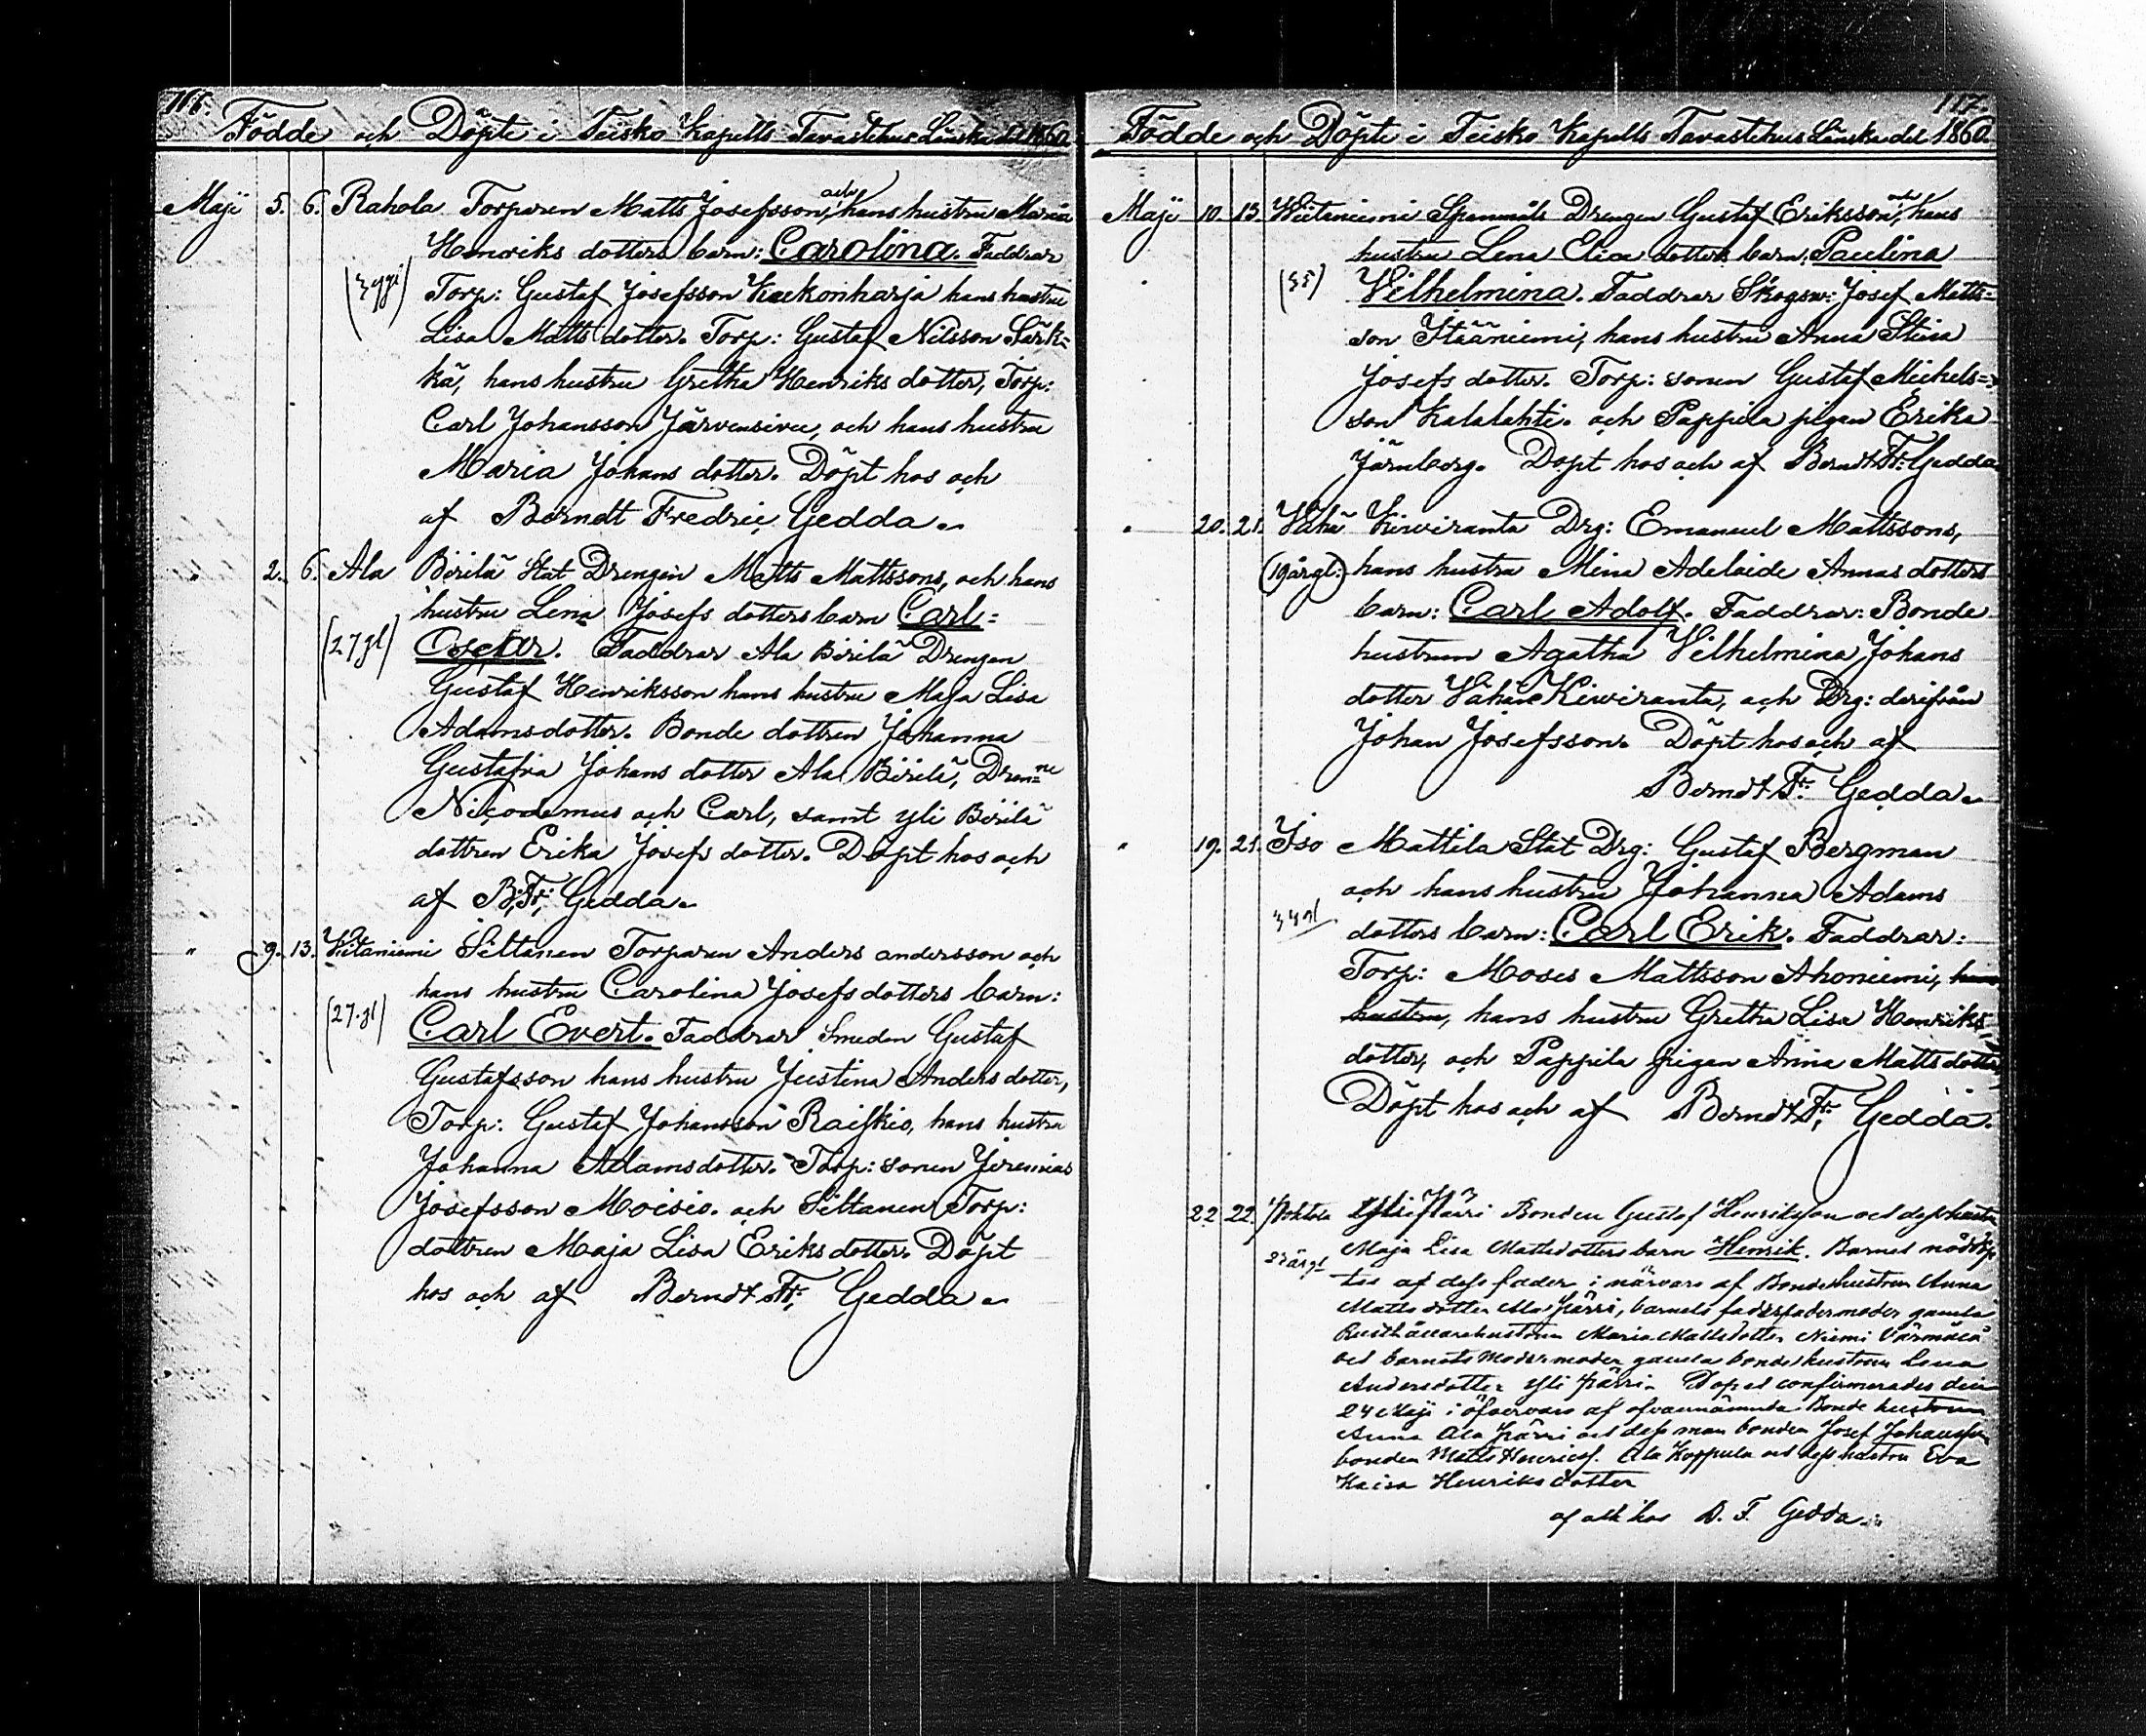 116.
Födde och Döpte i Teisko Kapells Tavastehus Länska del 1860.
Maji 5. 6. Rahola Torparen Matts Josefsson, och hans hustru Maria
Henriks dotters barn: Carolina. Faddrar
Torp: Gustaf Josefsson Kuckonharja hans hustru
Lisa Matts dotter. Torp: Gustaf Nilsson Särk=
kä, hans hustru Gretha Henriks dotter, Torp:
Carl Johansson Järvensivu, och hans hustru
Maria Johans dotter. Döpt hos och
af Berndt Fredric Gedda.
" 2. 6. Ala Birilä Stat Drengen Matts Mattssons, och hans
hustru Lena Josefs dotters barn Carl=
(27 jl) Oscar. Faddrar Ala Birilä Drengen
Gustaf Henriksson hans hustru Maja Lisa
Adamsdotter. Bonde dottren Johanna
Gustafva Johans dotter Ala Birilä, Dren=ne
Nicodemus och Carl, samt yli Birilä
dottren Erika Josefs dotter. Döpt hos och
af B; Fr; Gedda.
" 9. 13. Wiitaniemi Siltanen Torparen Anders andersson och
hans hustru Carolina Josefs dotters barn:
(27. jl) Carl Evert. Faddrar Smeden Gustaf
Gustafsson hans hustru Justina Anders dotter,
Torp: Gustaf Johansson Raiskio, hans hustru
Johanna Adamsdotter. Torp: sonen Jeremias
Josefsson Moisio. och Siltanen Torp:
dottren Maja Lisa Eriks dotter. Döpt
hos och af Berndt Fr; Gedda.
117.
Födde och Döpte i Teisko Kapells Tavastehus Länska del 1860.
Maji 10. 13. Wiitaniemi Spanmåls Drengen Gustaf Eriksson, och hans
hustru Lena Elia dotters barn, Paulina
(35) Vilhelmina. Faddrar Skogsv: Josef Matts=
son Itääniemi, hans hustru Anna Stina
Josefs dotter. Torp: sonen Gustaf Michels=
son Kalalahti. och Pappila pigan Erika
Järnberg. Döpt hos och af Berndt Fr: Gedda
" 20. 21. Vähä Kirviranta Drg: Emanuel Mattssons,
(19 årgl:) hans hustru Mina Adelaide Annas dotters
barn: Carl Adolf. Faddrar: Bonde
hustrun Agatha Vilhelmina Johans
dotter Vähä Kirviranta, och Drg: derifrån
Johan Josefsson. Döpt hos och af
Berndt Fr: Gedda.
" 19. 21. Iso Mattila Stat Drg: Gustaf Bergman
och hans hustru Johanna Adams
dotters barn: Carl Erik. Faddrar:
Torp: Moses Mattsson Ahoniemi, hans
hustru, hans hustru Gretha Lisa Henriks
dotter, och Pappila pigan Anna Matts dotter,
Döpt hos och af Berndt Fr; Gedda.
22 22. Bonden Gustaf Henriksson och dess hustru
Maja Lisa Mattsdotters barn Henrik. Barnet nöddöp
tes af dess fader i närvaro af Bondehustrun Anna
Matts dotter Ala Järri, barnets fadersfadermoder gamla
Rusthållarehustrun Maria Mattsdotter Niemi Värmälä
och barnets Modermoder gamla bondehustrun Lena
Andersdotter Yli Järri. Dopet confirmerades den
24 Maji i öfvervaro af ofvannämnda Bonde hustrun
Anna Ala Järri och dess man bonden Josef Johansson
bonden Matts Henricsf. Ala Koppala och dess hustru Eva
Kaisa Henriks dotter
af och hos B. F. Gedda.